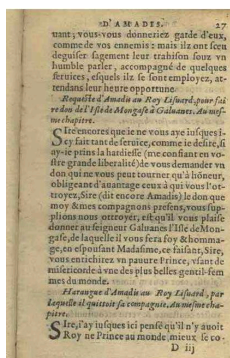 D'AMADIS. 27
uant, vous-vous donneriez garde d'eux,
comme de vos ennemis : mais ilz ont sceu
deguiser sagement leur trahison souz vn
humble parler, accompagné de quelques
seruices, esquels ilz se sont employez, at-
tendans leur heure opportune.
Requeste d'Amadis au Roy Lisuard, pour fai
re don de l'Isle de Mongase à Galuanes. Au mes-
me chapitre.
SIre encores que ie ne vous aye iusques i-
cy fait tant de seruice, comme ie desire, si
ay-ie prins la hardiesse (me confiant en vo-
stre grande liberalité) de vous demander vn
don qui ne vous peut tourner qu'à hôneur,
obligeant d'auantage ceux à qui vous l'ot-
troyez, Sire (dit encore Amadis) le don que
moy & mes compagnons presens, vous sup-
plions nous ottroyer, est qu'il vous plaise
donner au seigneur Galuanes l'Isle de Mon-
gase, de laquelle il vous fera foy & homma-
ge, en espousant Madasime, ce faisant, Sire,
vous enrichirez vn pauure Prince, vsant de
misericorde à vne des plus belles gentil-fem
mes du monde.
Harangue d'Amadis au Roy Lisuard, par
laquelle il quittoit sa compagnie. Au mesme cha-
pitre.
SIre, i'ay iusques ici pensé qu'il n'y auoit
Roy ne Prince au monde mieux se co-
D iij